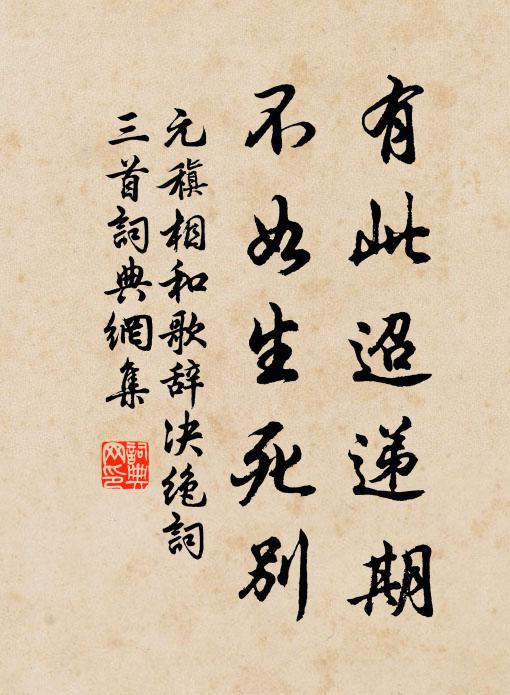 有此迢递期
不如生死别
元稹相和歌辞决绝詞
三首詞典網集
詞典
网印